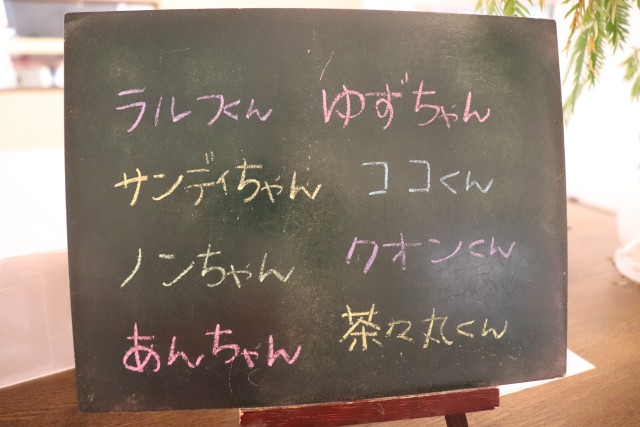 ラルフくん ゆずちゃん
サンディちゃん ココくん
ノンちゃん クオンくん
あんちゃん 茶々丸くん